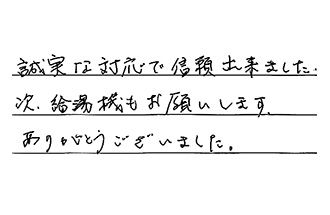 誠実な対応で信頼出来ました.
次、給湯機もお願いします。
ありがとうございました。